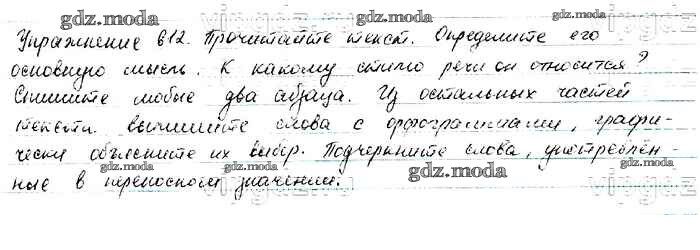 gdz.moda
Упражнение 612. Прочитайте текст. Определите его
основную мысль. К какому стилю речи он относится?
gdz.moda
Спишите любые два абзаца. Из остальных частей
текста выпишите слова с орфограммами, графи-
gdz.moda
чески объясните их выбор. Подчеркните слова, употреблён-
ные в переносном значении.
gdz.moda gdz.moda
gdz.moda